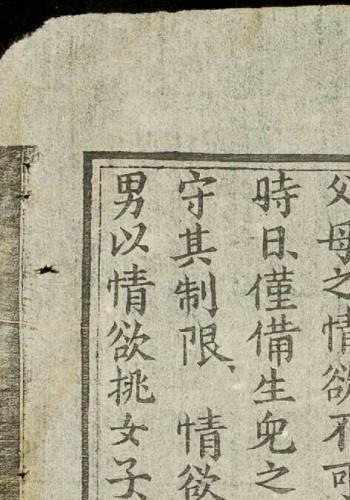 父母之情欲不可
時日、僅備生皃之
守其制限、情欲
男以情欲挑女子、